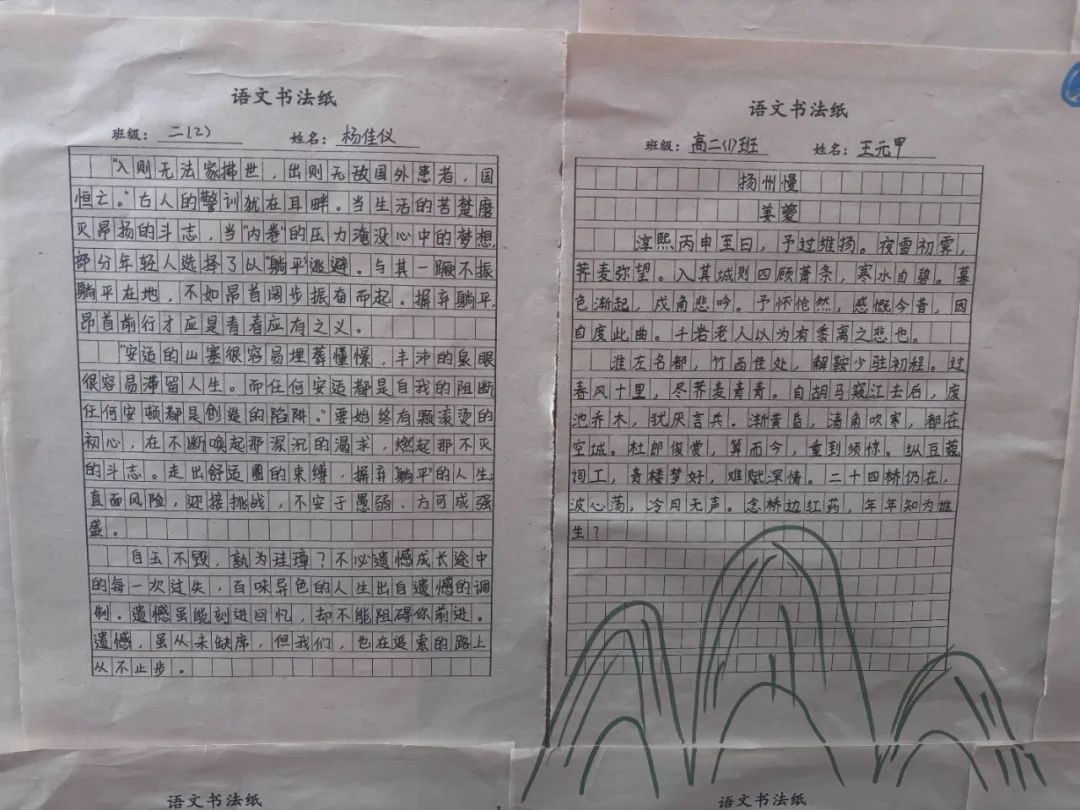 语文书法纸
班级：二(2) 姓名：杨佳仪
"入则无法家拂世，出则无敌国外患者，国
恒亡。"古人的警训犹在耳畔。当生活的苦楚磨
灭昂扬的斗志，当"内卷"的压力淹没心中的梦想，
部分年轻人选择了以"躺平"逃避。与其一蹶不振
躺平在地，不如昂首阔步振奋而起。摒弃躺平，
昂首前行才应是青春应有之义。
"安适的山寨很容易埋葬憧憬，丰沛的泉眼
很容易滞留人生。而任何安适都是自我的阻断
任何安顿都是创造的陷阱。"要始终有颗滚烫的
初心，在不断唤起那深沉的渴求，燃起那不灭
的斗志。走出舒适圈的束缚，摒弃"躺平"的人生；
直面风险，迎接挑战，不安于愚弱、方可成强
盛。
白玉不毁，孰为珪璋？不必遗憾成长途中
的每一次过失，百味异色的人生出自遗憾的调
制。遗憾虽能刻进回忆，却不能阻碍你前进。
遗憾，虽从未缺席，但我们，也在追索的路上
从不止步。
语文书法纸
班级：高二(1)班 姓名：王元甲
扬州慢
姜夔
淳熙丙申至日，予过维扬。夜雪初霁，
荠麦弥望。入其城则四顾萧条，寒水自碧。暮
色渐起，戍角悲吟。予怀怆然，感慨今昔，因
自度此曲。千岩老人以为有黍离之悲也。
淮左名都，竹西佳处，解鞍少驻初程。过
春风十里，尽荠麦青青。自胡马窥江去后，废
池乔木，犹厌言兵。渐黄昏，清角吹寒，都在
空城。杜郎俊赏，算而今，重到须惊。纵豆蔻
词工，青楼梦好，难赋深情。二十四桥仍在，
波心荡，冷月无声。念桥边红药，年年知为谁
生？
语文书法纸
语文书法纸